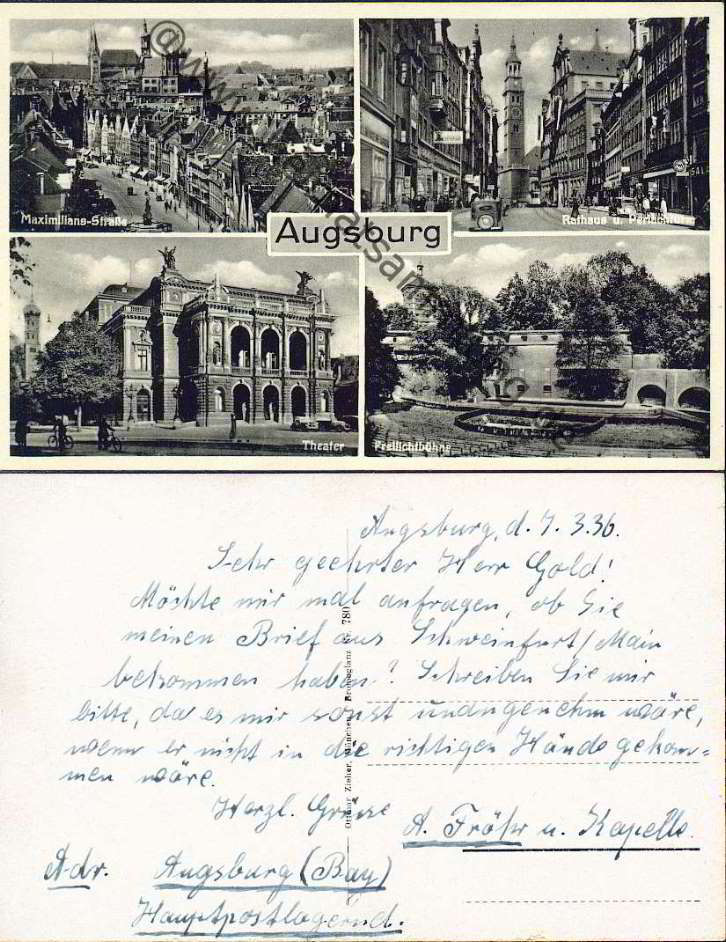 Maximilians-Straße
Rathaus u. Perlachturm
Augsburg
Theater
Freilichtbühne
Augsburg, d. 7. 3.36.
Sehr geehrter Herr Gold!
Möchte mir mal anfragen, ob Sie
meinen Brief aus Schweinfurt/Main
bekommen haben? Schreiben Sie mir
bitte, da es mir sonst unangenehm wäre,
wenn er nicht in die richtigen Hände gekom-
men wäre.
Herzl. Grüsse
A. Fröhr u. Kapelle.
Adr. Augsburg (Bay)
Hauptpostlagernd.
Ottmar Zieher, München, Bromoglanz Nr. 780